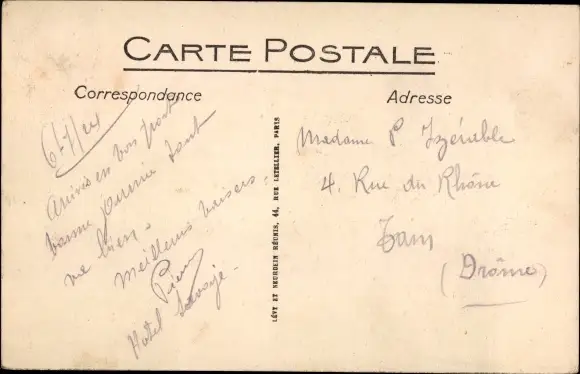 CARTE POSTALE
Correspondance
Adresse
6/7/24
Arrivés en bon port
bonne journée tout
va bien.
Meilleurs baisers.
Pierre
Hotel
LÉVY ET NEURDEIN RÉUNIS, 44, RUE LETELLIER, PARIS
Madame P. Izérable
4. Rue du Rhône
Tain
(Drôme)